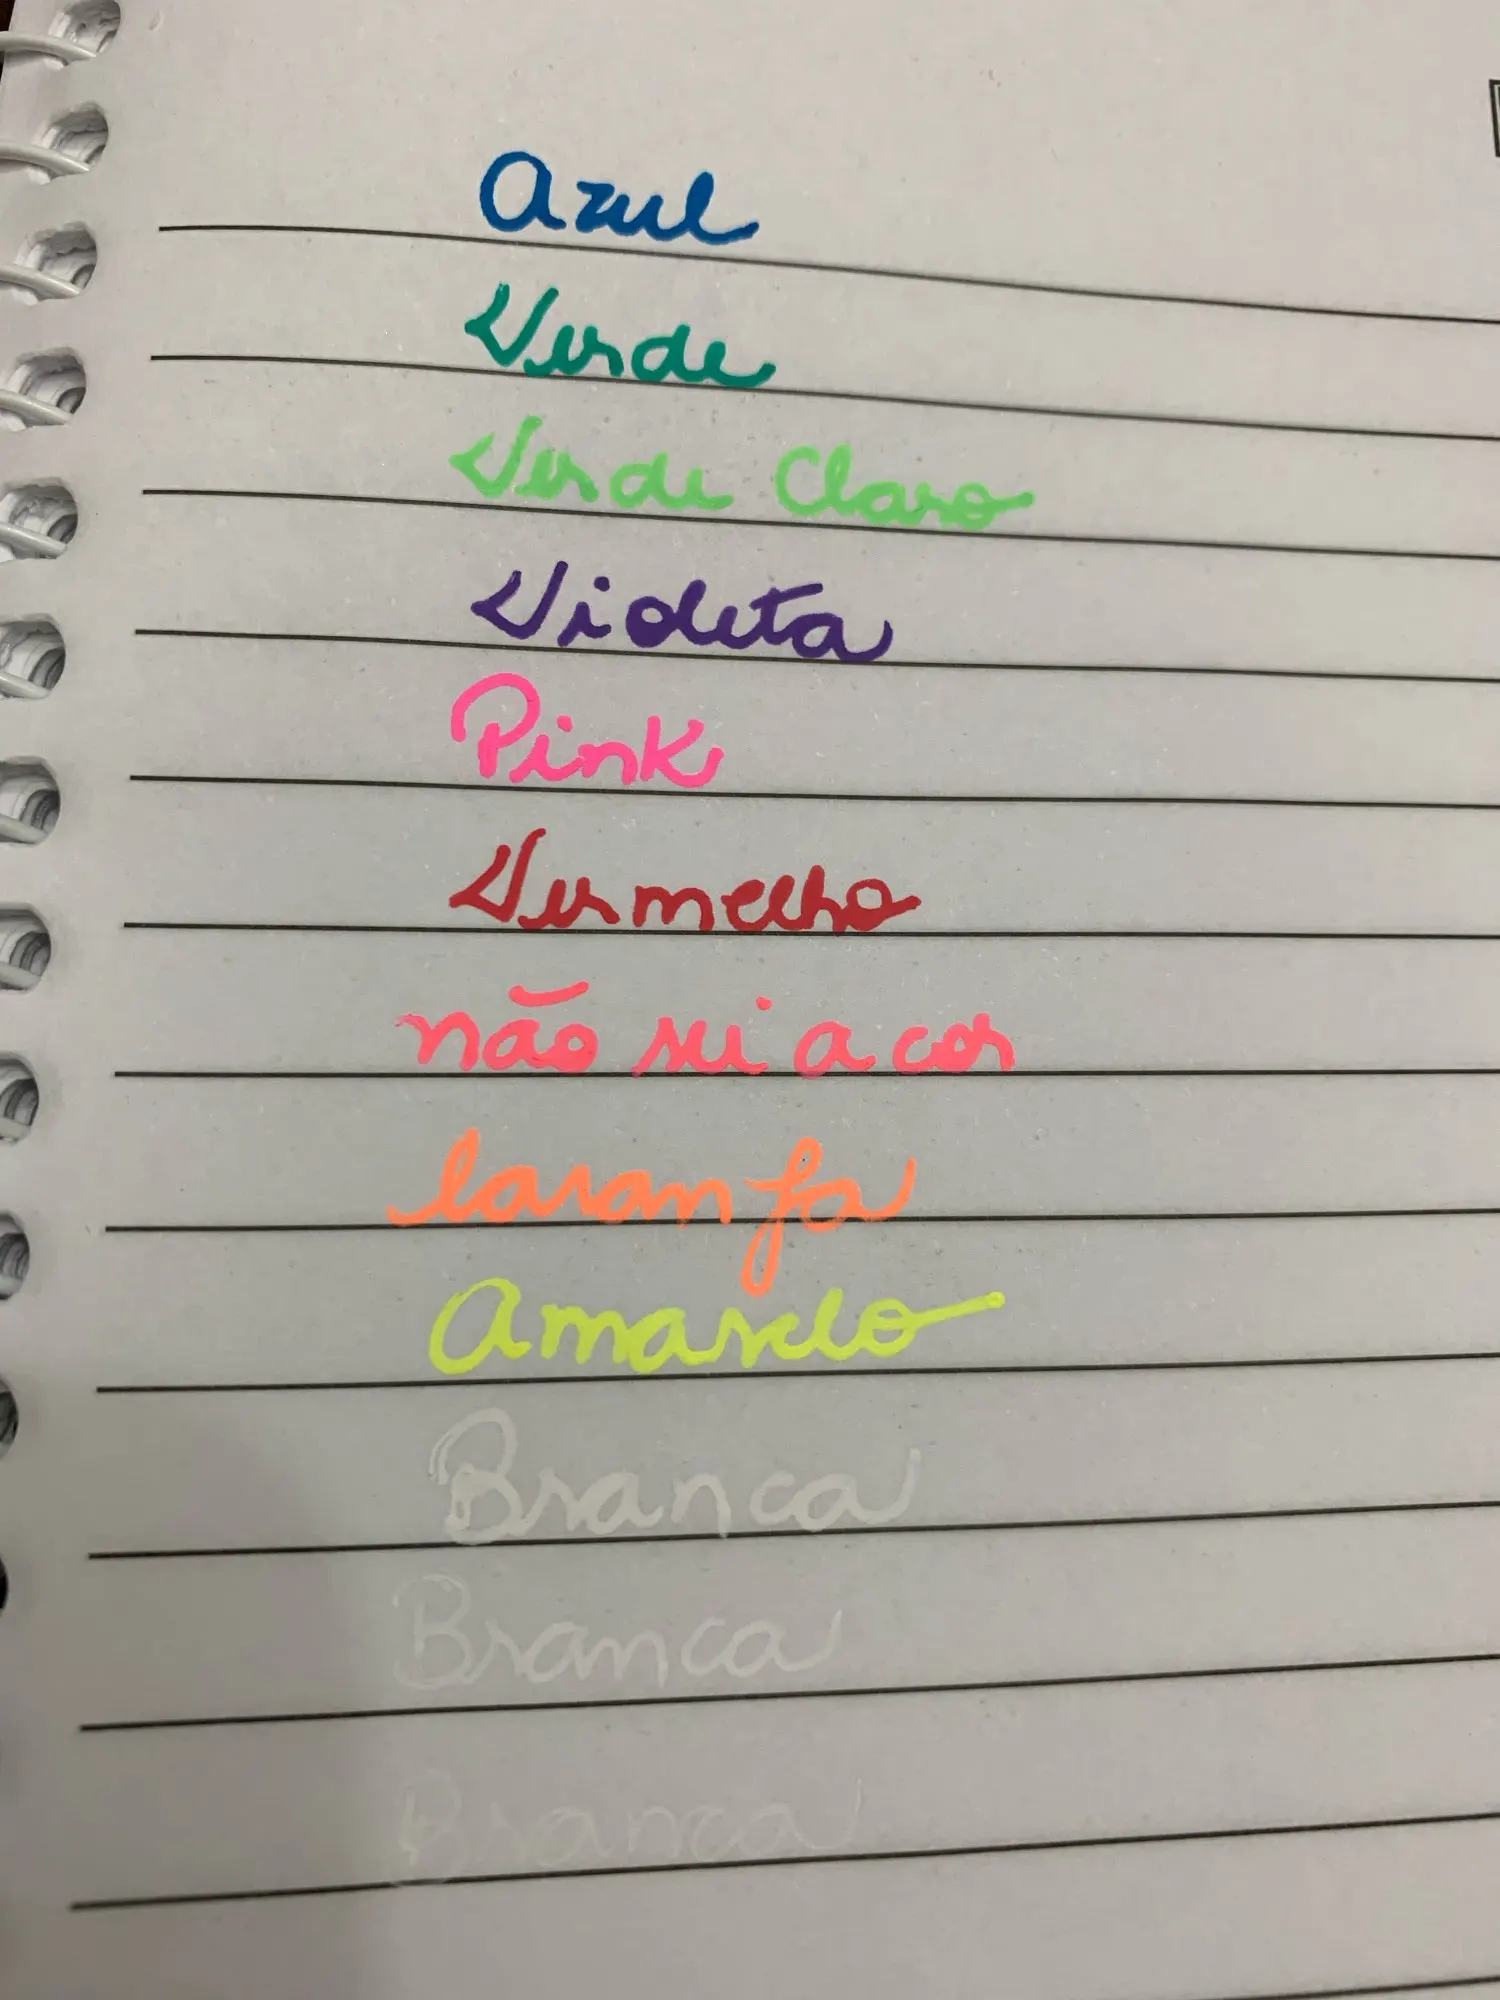 Azul
Verde
Verde Claro
Violeta
Pink
Vermelho
não sei a cor
laranja
Amarelo
Branca
Branca
Branca